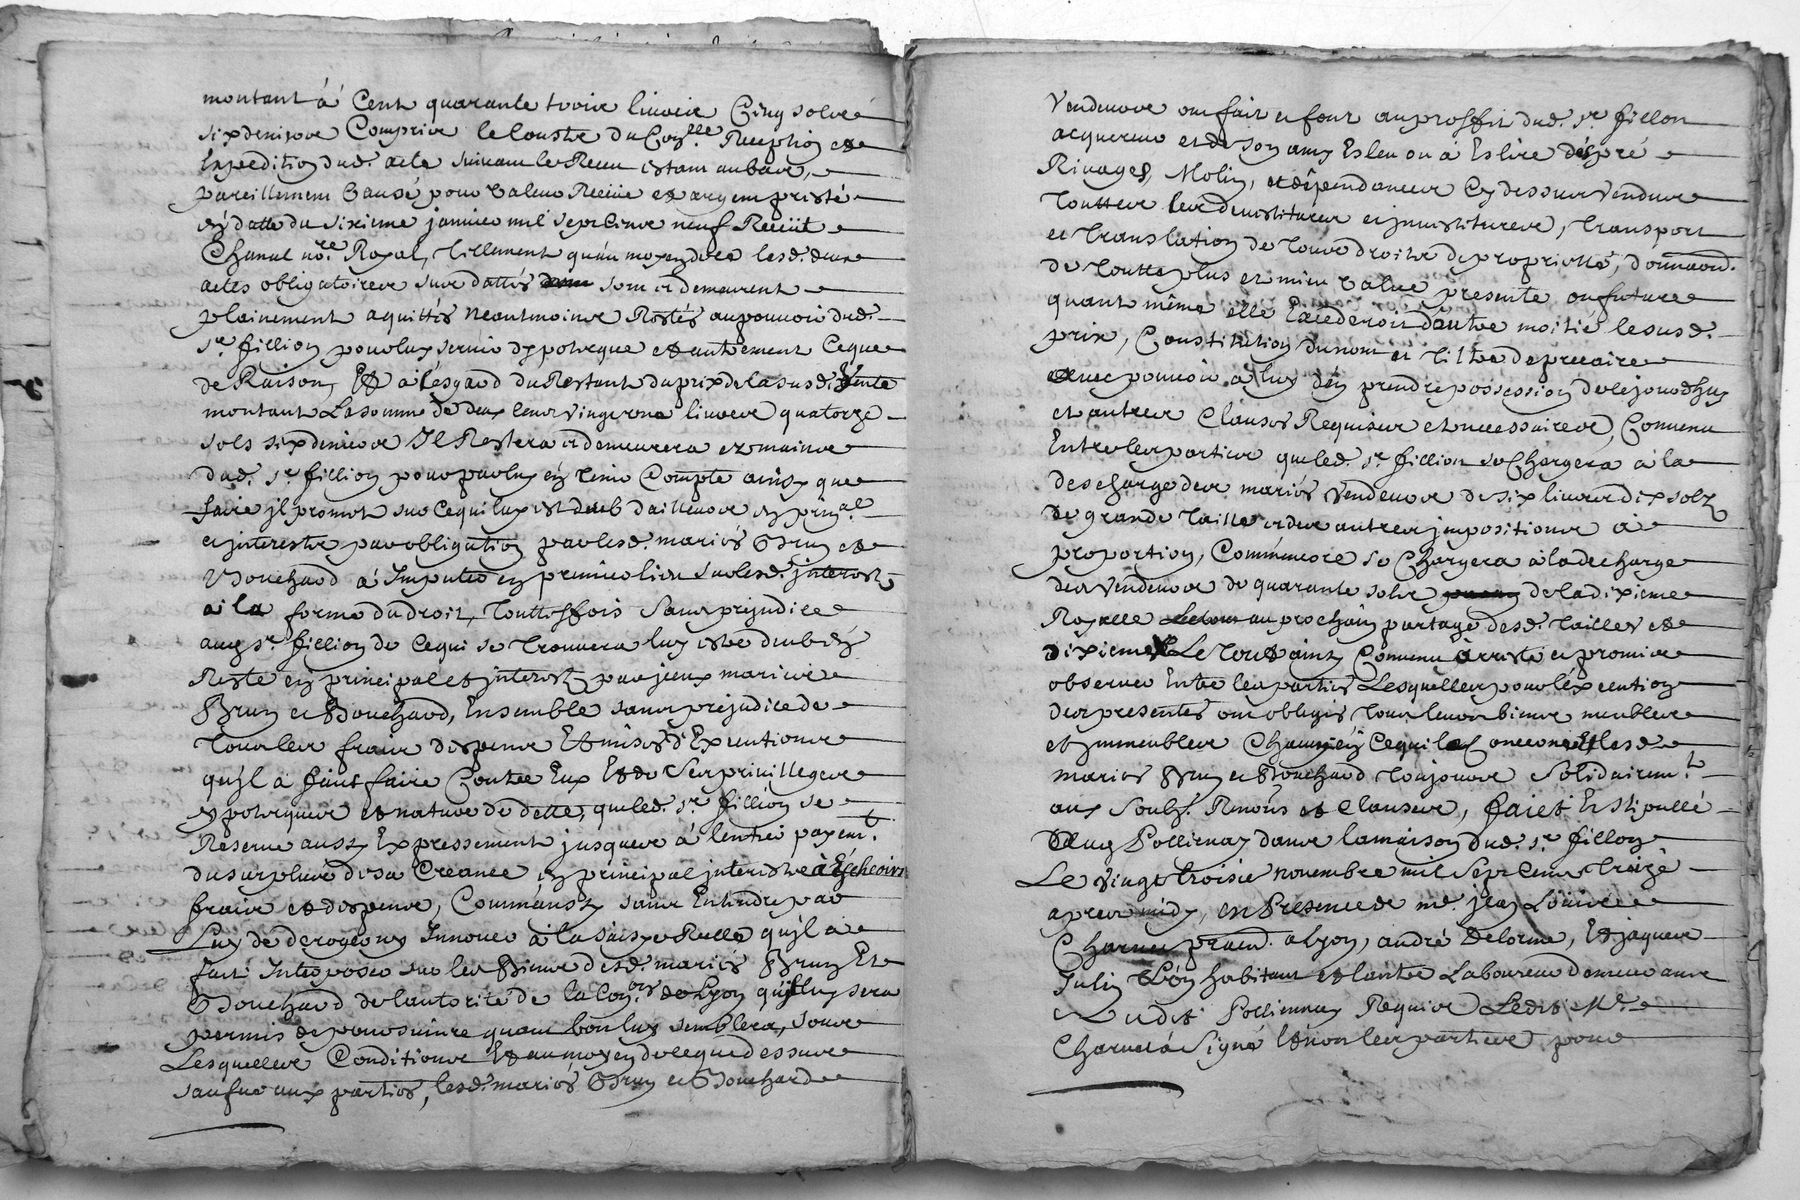 montant à Cent quarante trois livres Cinq solz
six deniers Compris le Controlle Reception et
Expedition dud. acte suivant le Receu estant au bas,
pareillement Causé pour valeur Receüe et argent presté
en datte du sixieme janvier mil sept Cents neuf Receüt
Chanal no.re Royal, tellement qu'au moyen de ce lesd. deux
actes obligatoires sus dattés sont et demeurent
plainement aquittés neantmoins Restés au pouvoir dud.
sr. fillion pour luy servir d'ypoteque et autrement Ceque
de Raison, Et à l'esgard du Restant du prix de la susd. Vente
montant La somme de deux Cents vingt une livres quatorze
sols six deniers Il Restera et demeurera es mains
dud. sr. fillion pour par luy en tenir Compte ainsy que
faire jl promet sur Ce qui luy est deub d'ailleurs en prin.al
et interests par obligation par lesd. mariés Brun et
Bouchard à Imputer en premier lieu sur lesd. jnterests
à la forme du droit, touttesfois Sans prejudice
aud sr. fillion de Ce qui se trouvera luy estre deub de
Reste en principal et jnterests par jceux mariés
Brun et Bouchard, Ensemble sans prejudice de
tous les frais despens Et mises d'Executions
qu'jl a faict faire Contre Eux Et de Ses privilleges
ypoteques et nature de dette, que led. sr. fillion se
Reserve aussy Expressement jusques à l'entier payem.t
du surplus de sa Creance en principal jnterests à Escheoir
frais et despens, Comm'aussy sans Entendre par
Luy de deroger ny Innover à la saisye Reelle qu'jl a
fait Interposer sur les Biens desd. mariés Brun Et
Bouchard de l'autorité de la Con.on de Lyon qu'jl luy sera
permis de poursuivre quant bon luy semblera, sous
Lesquelles Conditions Et au moyen de ce que dessus
sauf aux parties, lesd. mariés Brun et Bouchard
Vendeurs ont fait et font au proffit dud. sr. fillon
acquereur et de son amy Esleu ou à Eslire desd. pré
Rivages, Molin, et dépendances Cy dessus vendues
touttes les devestitures et jnvestitures, transport
et translation de tous droits de proprietté, donnaon.
de toutte plus et mieu value presente ou future
quant même elle Excederoit d'autre moitié le susd.
prix, Constitution du nom et tiltre de precaire
avec pouvoir à luy d'en prendre possession dès ce jourd'huy
et autres Clauses Requises et necessaires, Convenu
Entre les parties que led. sr. fillion se Chargera à la
descharge des mariés Vendeurs de six livres dix solz
de grande taille et des autres jmpositions à
proportion, Comm'encore se Chargera à la decharge
des Vendeurs de quarante sols de la dixieme
Royalle au prochain partage desd. tailles et
dixieme Le tout ainsy Convenu Arresté et promis
observer Entre les parties Lesquelles pour l'execution
des presentes ont obligés tous leurs biens meubles
et jmmeubles Chacun en Ce qui le Concerne Et lesd.
mariés Brun et Bouchard toujours Solidairem.t
aux Soubs. Renons et Clauses, faict Et stipullé
Aud Pollienay dans la maison dud. sr. fillon
Le vingt troisie novembre mil Sept Cents treize
apres midy, en Presence de me. jean Louis
Charvet pratn. a lyon, andré delorme, Et jaques
Julin L'un habitant et l'autre Laboureur demeurants
Audit Pollienay Requis Ledit Mr.
Charvet à signé Et non les parties pour